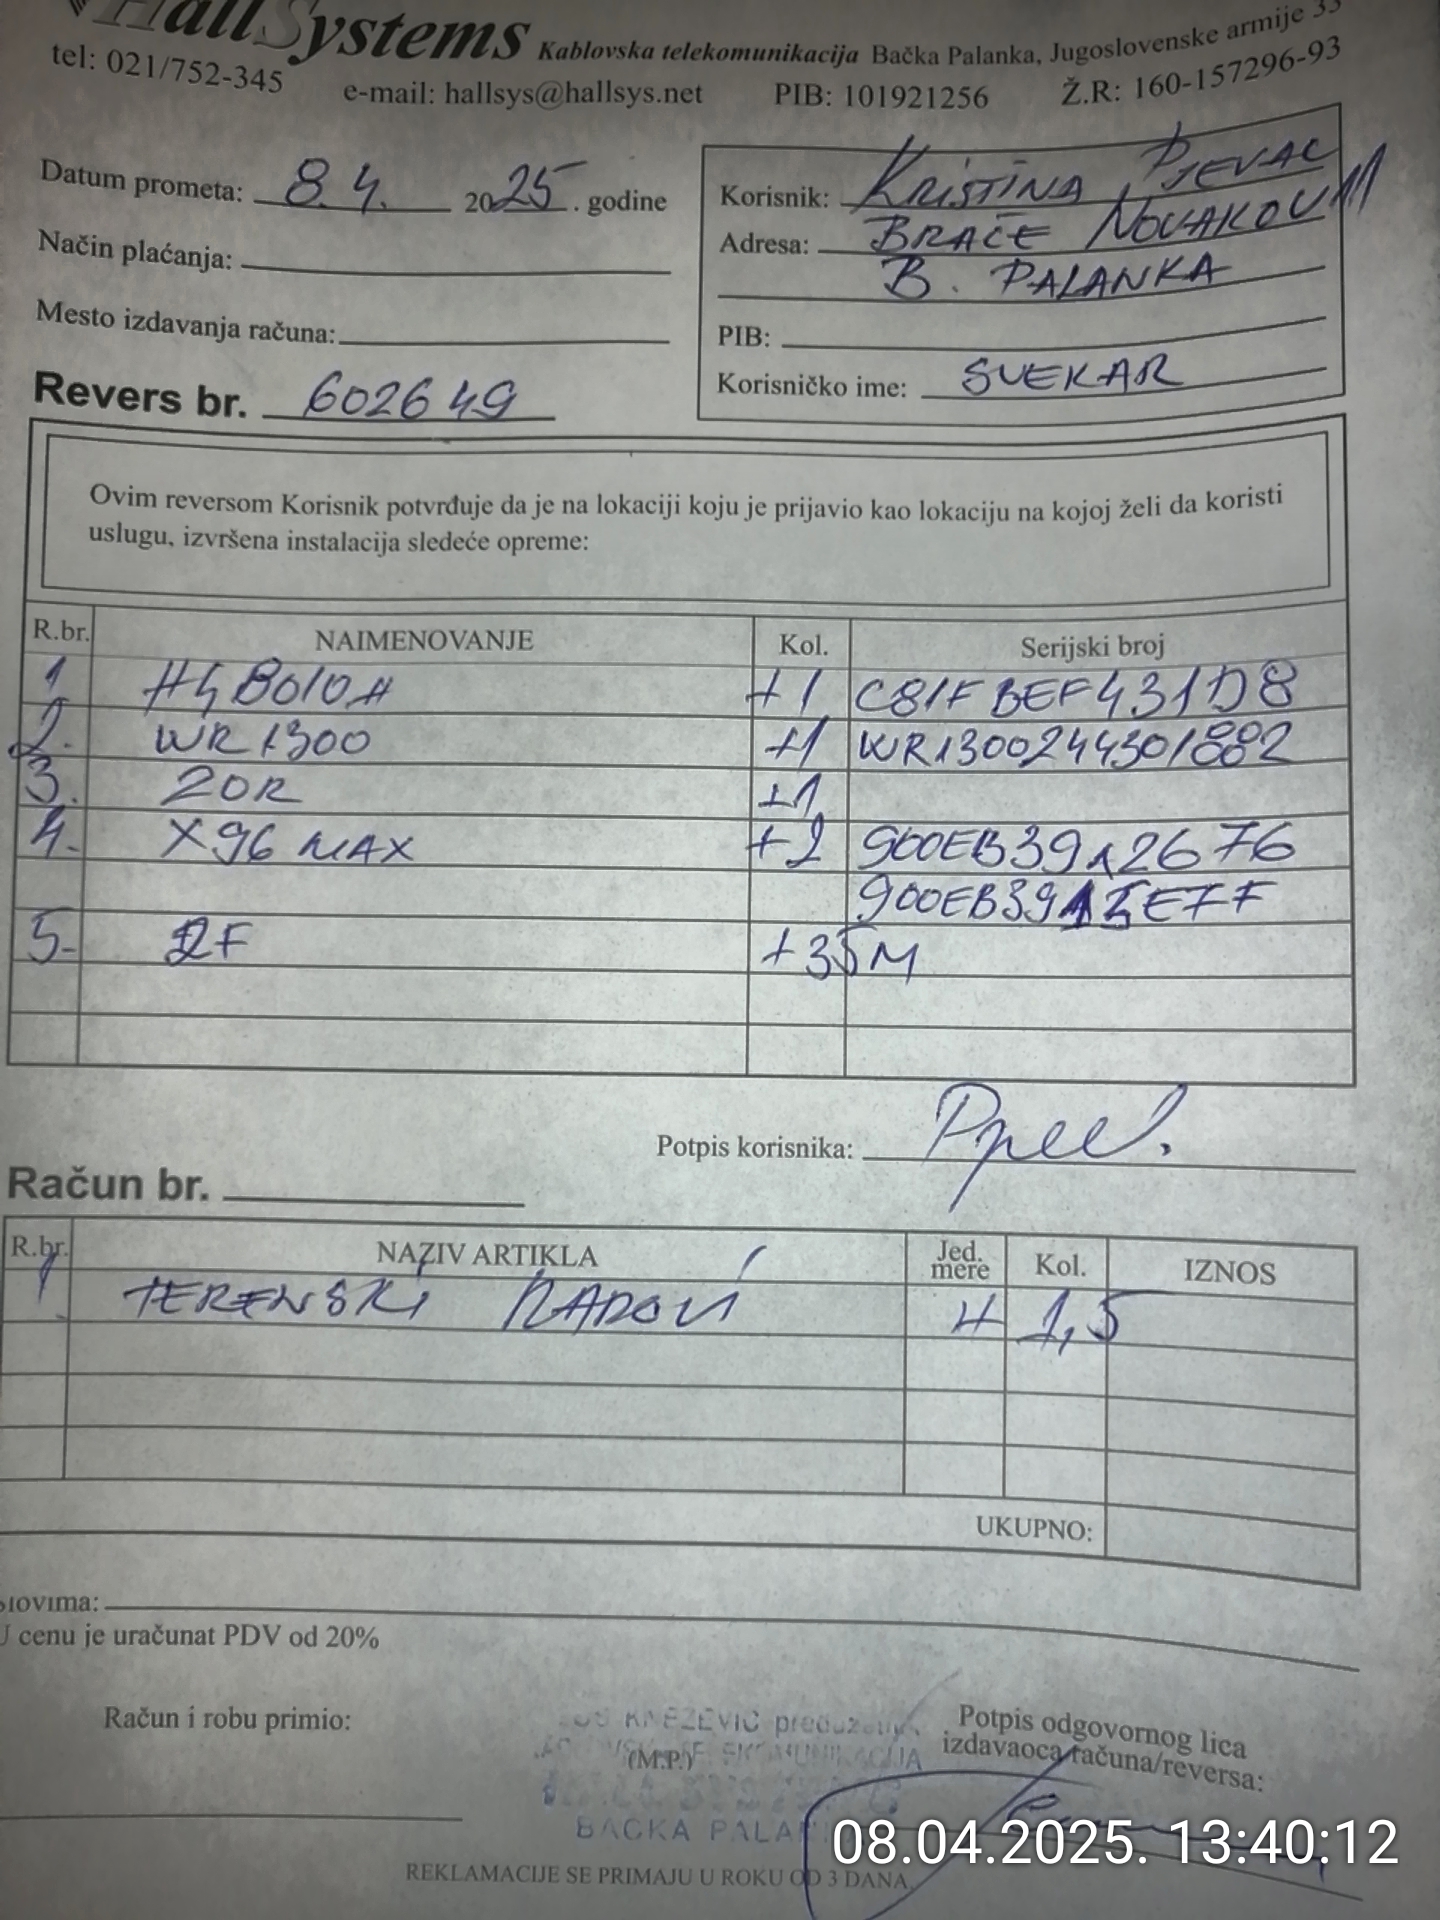 HallSystems Kablovska telekomunikacija Bačka Palanka, Jugoslovenske armije 33
tel: 021/752-345 e-mail: hallsys@hallsys.net PIB: 101921256 Ž.R: 160-157296-93
Datum prometa: 8.4. 2025. godine
Način plaćanja:
Mesto izdavanja računa:
Revers br. 602649
Korisnik: KRISTINA PJEVAC
Adresa: BRAĆE NOVAKOV 11
B. PALANKA
PIB:
Korisničko ime: SVEKAR
Ovim reversom Korisnik potvrđuje da je na lokaciji koju je prijavio kao lokaciju na kojoj želi da koristi
uslugu, izvršena instalacija sledeće opreme:
R.br. NAIMENOVANJE Kol. Serijski broj
1 HG8010H +1 C81FBEF431D8
2. WR1300 +1 WR1300244301882
3. ZOR +1
4. X96 MAX +2 900EB3912676
900EB3915EFF
5. 2F +35M
Potpis korisnika:
Račun br.
R.br. NAZIV ARTIKLA Jed. mere Kol. IZNOS
1. TERENSKI RADOVI H 1,5
UKUPNO:
Slovima:
U cenu je uračunat PDV od 20%
Račun i robu primio:
KNEZEVIĆ preduzetnik
(M.P.)
BAČKA PALANKA
Potpis odgovornog lica
izdavaoca računa/reversa:
REKLAMACIJE SE PRIMAJU U ROKU OD 3 DANA.
08.04.2025. 13:40:12